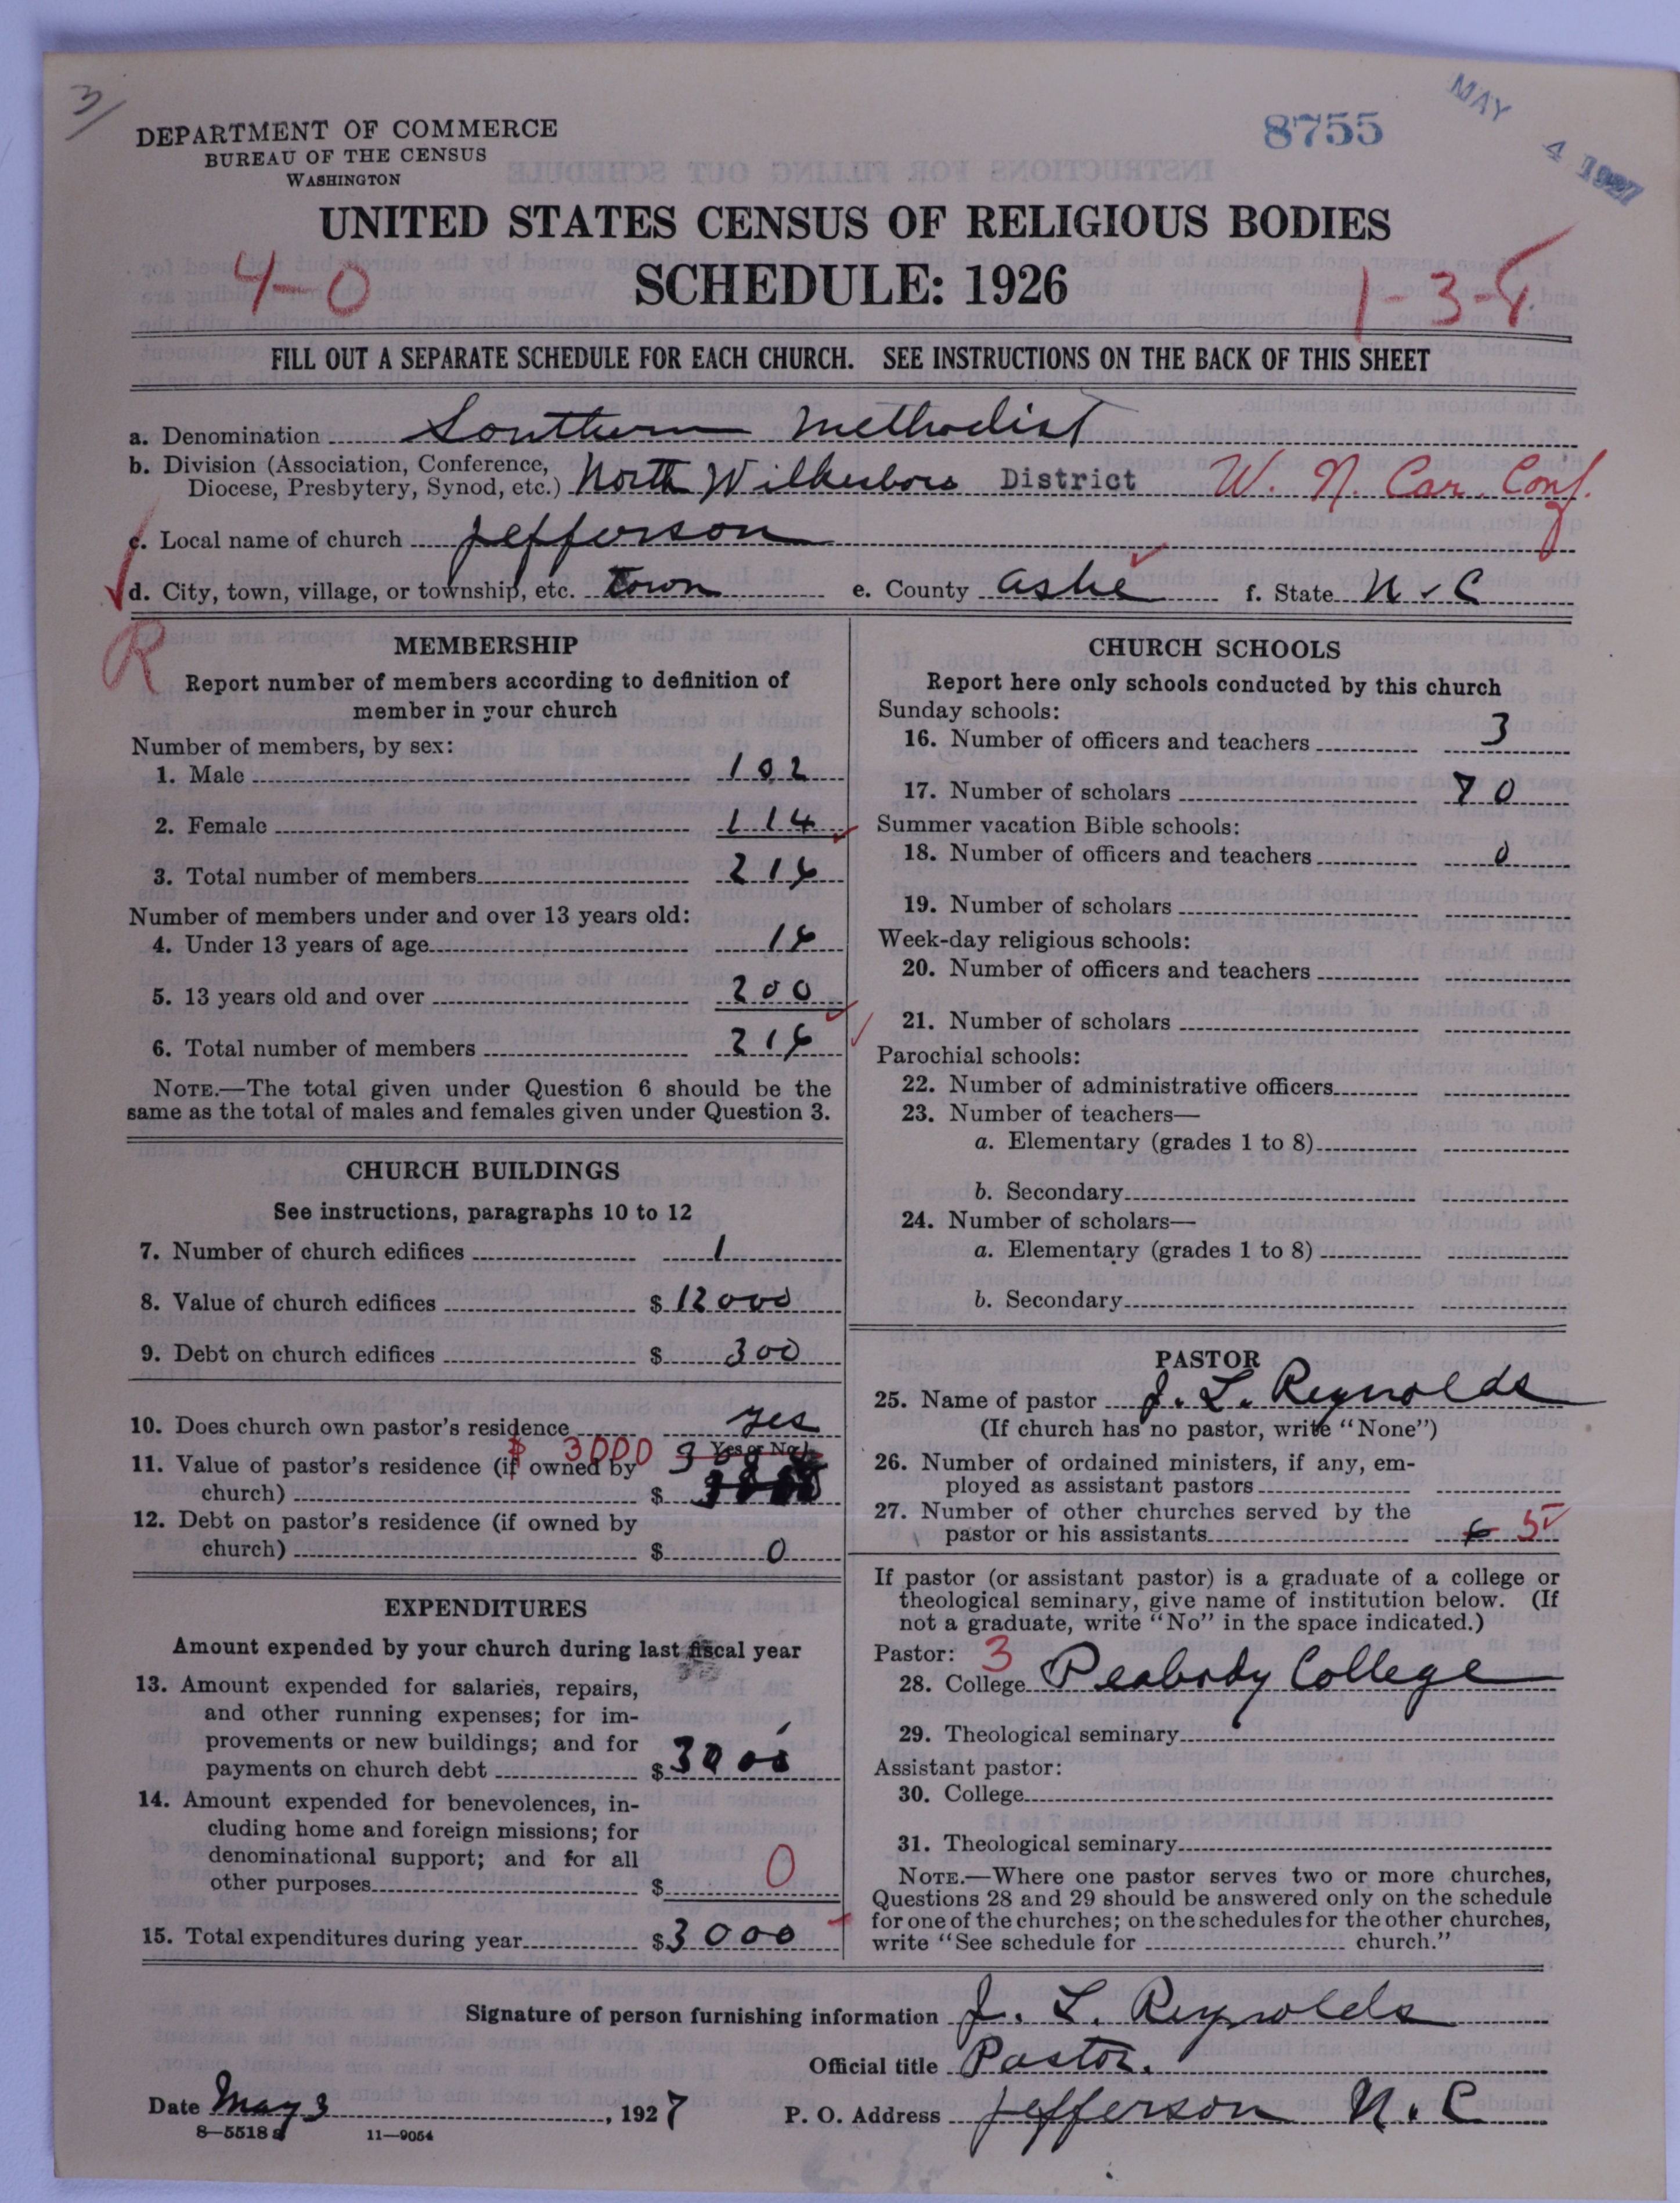 3/
DEPARTMENT OF COMMERCE
BUREAU OF THE CENSUS
WASHINGTON
8755
MAY 4 1927
UNITED STATES CENSUS OF RELIGIOUS BODIES
SCHEDULE: 1926
4-0
1-3-8
FILL OUT A SEPARATE SCHEDULE FOR EACH CHURCH. SEE INSTRUCTIONS ON THE BACK OF THIS SHEET
a. Denomination Southern Methodist
b. Division (Association, Conference,
Diocese, Presbytery, Synod, etc.) North Wilkesboro District W. N. Car. Conf.
c. Local name of church Jefferson
d. City, town, village, or township, etc. town e. County Ashe f. State N.C
R
MEMBERSHIP
Report number of members according to definition of
member in your church
Number of members, by sex:
1. Male 102
2. Female 114
3. Total number of members 216
Number of members under and over 13 years old:
4. Under 13 years of age 16
5. 13 years old and over 200
6. Total number of members 216
NOTE.—The total given under Question 6 should be the
same as the total of males and females given under Question 3.
CHURCH BUILDINGS
See instructions, paragraphs 10 to 12
7. Number of church edifices 1
8. Value of church edifices $ 12000
9. Debt on church edifices $ 300
10. Does church own pastor's residence yes
Yes or No
11. Value of pastor's residence (if owned by
church) $
$ 3000
12. Debt on pastor's residence (if owned by
church) $ 0
EXPENDITURES
Amount expended by your church during last fiscal year
13. Amount expended for salaries, repairs,
and other running expenses; for im-
provements or new buildings; and for
payments on church debt $ 3000
14. Amount expended for benevolences, in-
cluding home and foreign missions; for
denominational support; and for all
other purposes $ 0
15. Total expenditures during year $ 3000
CHURCH SCHOOLS
Report here only schools conducted by this church
Sunday schools:
16. Number of officers and teachers 3
17. Number of scholars 70
Summer vacation Bible schools:
18. Number of officers and teachers 0
19. Number of scholars
Week-day religious schools:
20. Number of officers and teachers
21. Number of scholars
Parochial schools:
22. Number of administrative officers
23. Number of teachers—
a. Elementary (grades 1 to 8)
b. Secondary
24. Number of scholars—
a. Elementary (grades 1 to 8)
b. Secondary
PASTOR
25. Name of pastor J. L. Reynolds
(If church has no pastor, write "None")
26. Number of ordained ministers, if any, em-
ployed as assistant pastors
27. Number of other churches served by the
pastor or his assistants 6 5
If pastor (or assistant pastor) is a graduate of a college or
theological seminary, give name of institution below. (If
not a graduate, write "No" in the space indicated.)
Pastor: 3
28. College Peabody College
29. Theological seminary
Assistant pastor:
30. College
31. Theological seminary
NOTE.—Where one pastor serves two or more churches,
Questions 28 and 29 should be answered only on the schedule
for one of the churches; on the schedules for the other churches,
write "See schedule for church."
Signature of person furnishing information J. L. Reynolds
Official title Pastor.
Date May 3, 1927 P. O. Address Jefferson N.C
8—5518 a 11—9054